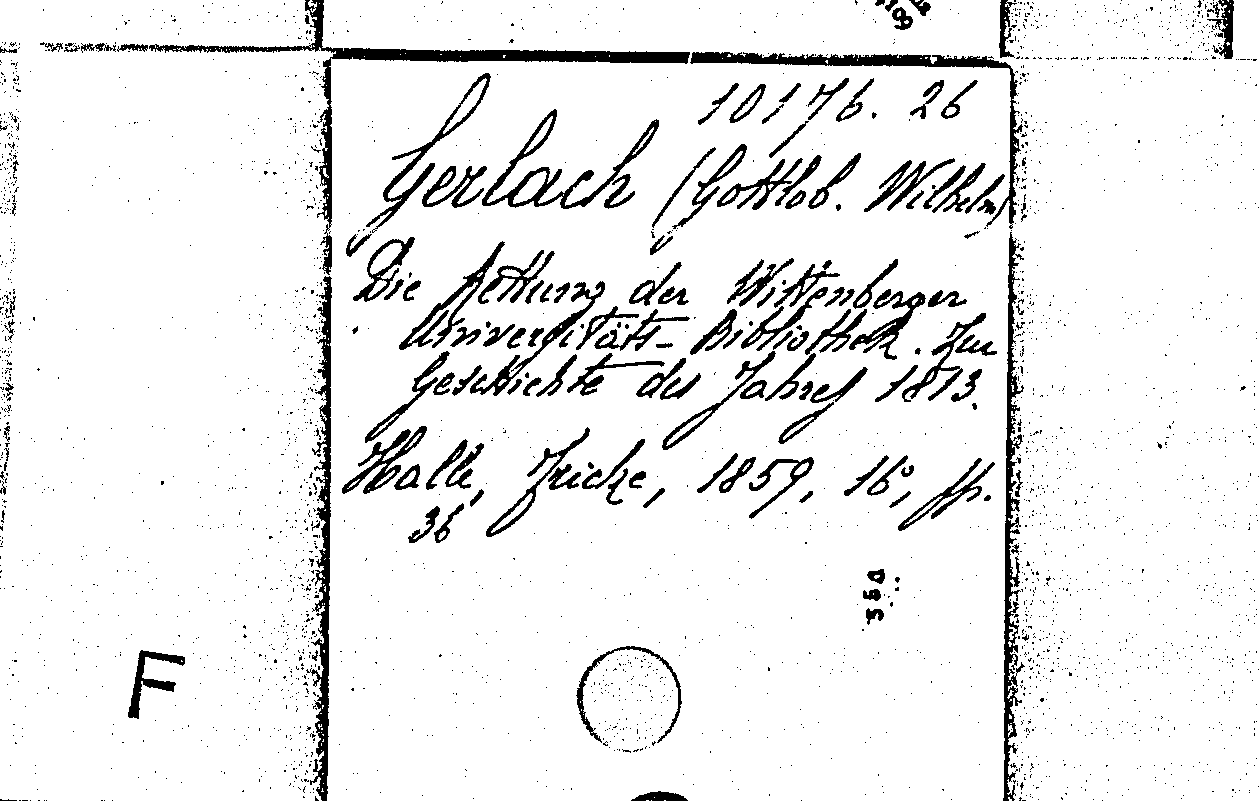 10176. 26
Gerlach (Gottlob. Wilhelm)
Die Rettung der Wittenberger
Universitäts-Bibliothek. Zur
Geschichte des Jahres 1813.
Halle, Fricke, 1859, 16°, pp.
36
F